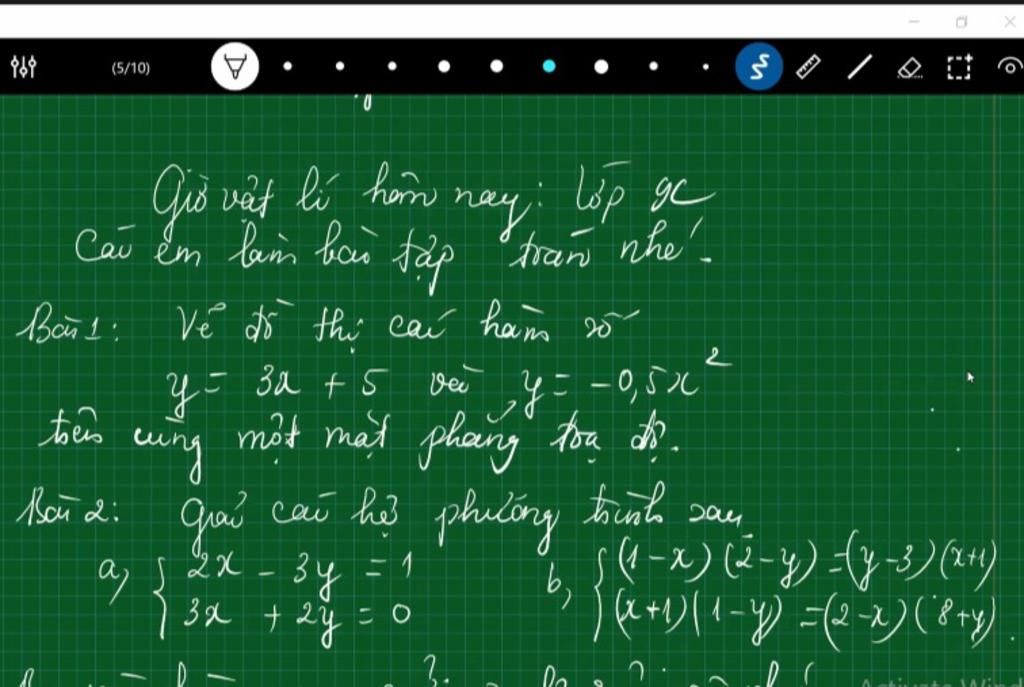 (5/10)
Giờ vật lí hôm nay: Lớp 9C
Các em làm bài tập toán nhé.
Bài 1: Vẽ đồ thị các hàm số
y = 3x + 5 và y = -0,5x²
trên cùng một mặt phẳng toạ độ.
Bài 2: Giải các hệ phương trình sau
a, { 2x - 3y = 1
3x + 2y = 0
b, { (1-x)(2-y) = (y-3)(x+1)
(x+1)(1-y) = (2-x)(8+y).